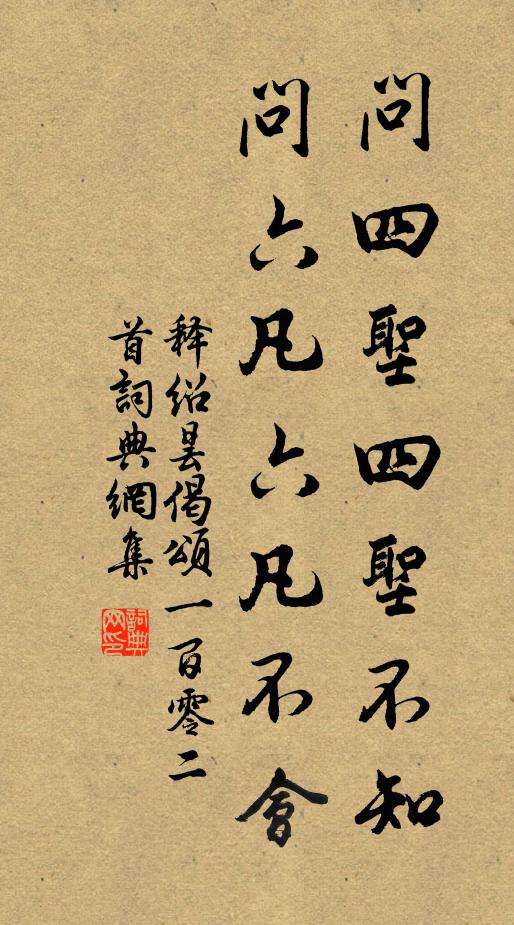 問四聖四聖不知
問六凡六凡不會
释绍昙偈頌一百零二
首詞典網集
詞典
网印